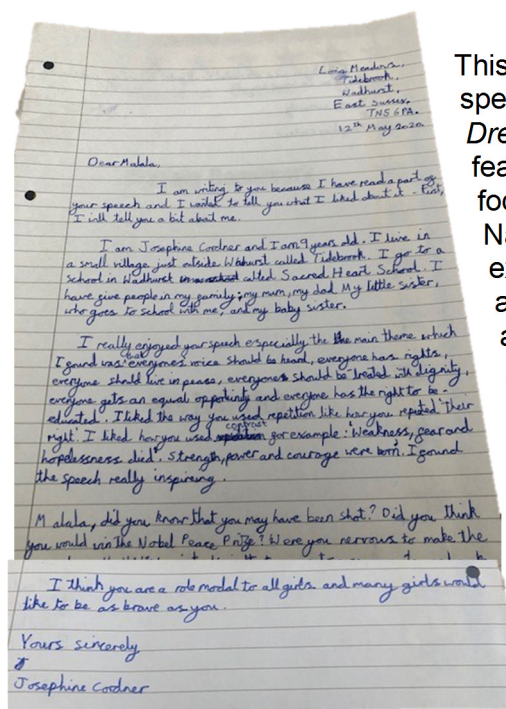 Lois Meadows,
Tidebrook,
Wadhurst,
East Sussex.
TN5 6PA.
12th May 2020.
Dear Malala,
I am writing to you because I have read a part of
your speech and I wanted to tell you what I liked about it - First,
I will tell you a bit about me.
I am Josephine Cordner and I am 9 years old. I live in
a small village just outside Wahurst called Tidebrook. I go to a
school in Wadhurst called Sacred Heart School. I
have five people in my family: my mum, my dad My little sister,
who goes to school with me, and my baby sister.
I really enjoyed your speech especially the the main theme which
I found was that everyone's voice should be heard, everyone has rights,
everyone should live in peace, everyone should be treated with dignity,
everyone gets an equal opportunity and everyone has the right to be
educated. I liked the way you used repetition like how you repeted 'Their
right'. I liked how you used contrast for example: 'Weakness, fear and
hopelessness died. Strength, power and courage were born. I found
the speech really inspireing.
Malala, did you know that you may have been shot? Did you think
you would win the Nobel Peace Prize? Were you nervous to make the
I think you are a role modal to all girls and many girls would
like to be as brave as you.
Yours sincerely
Josephine Cordner
This
spe
Dre
fea
foc
Na
ex
a
a